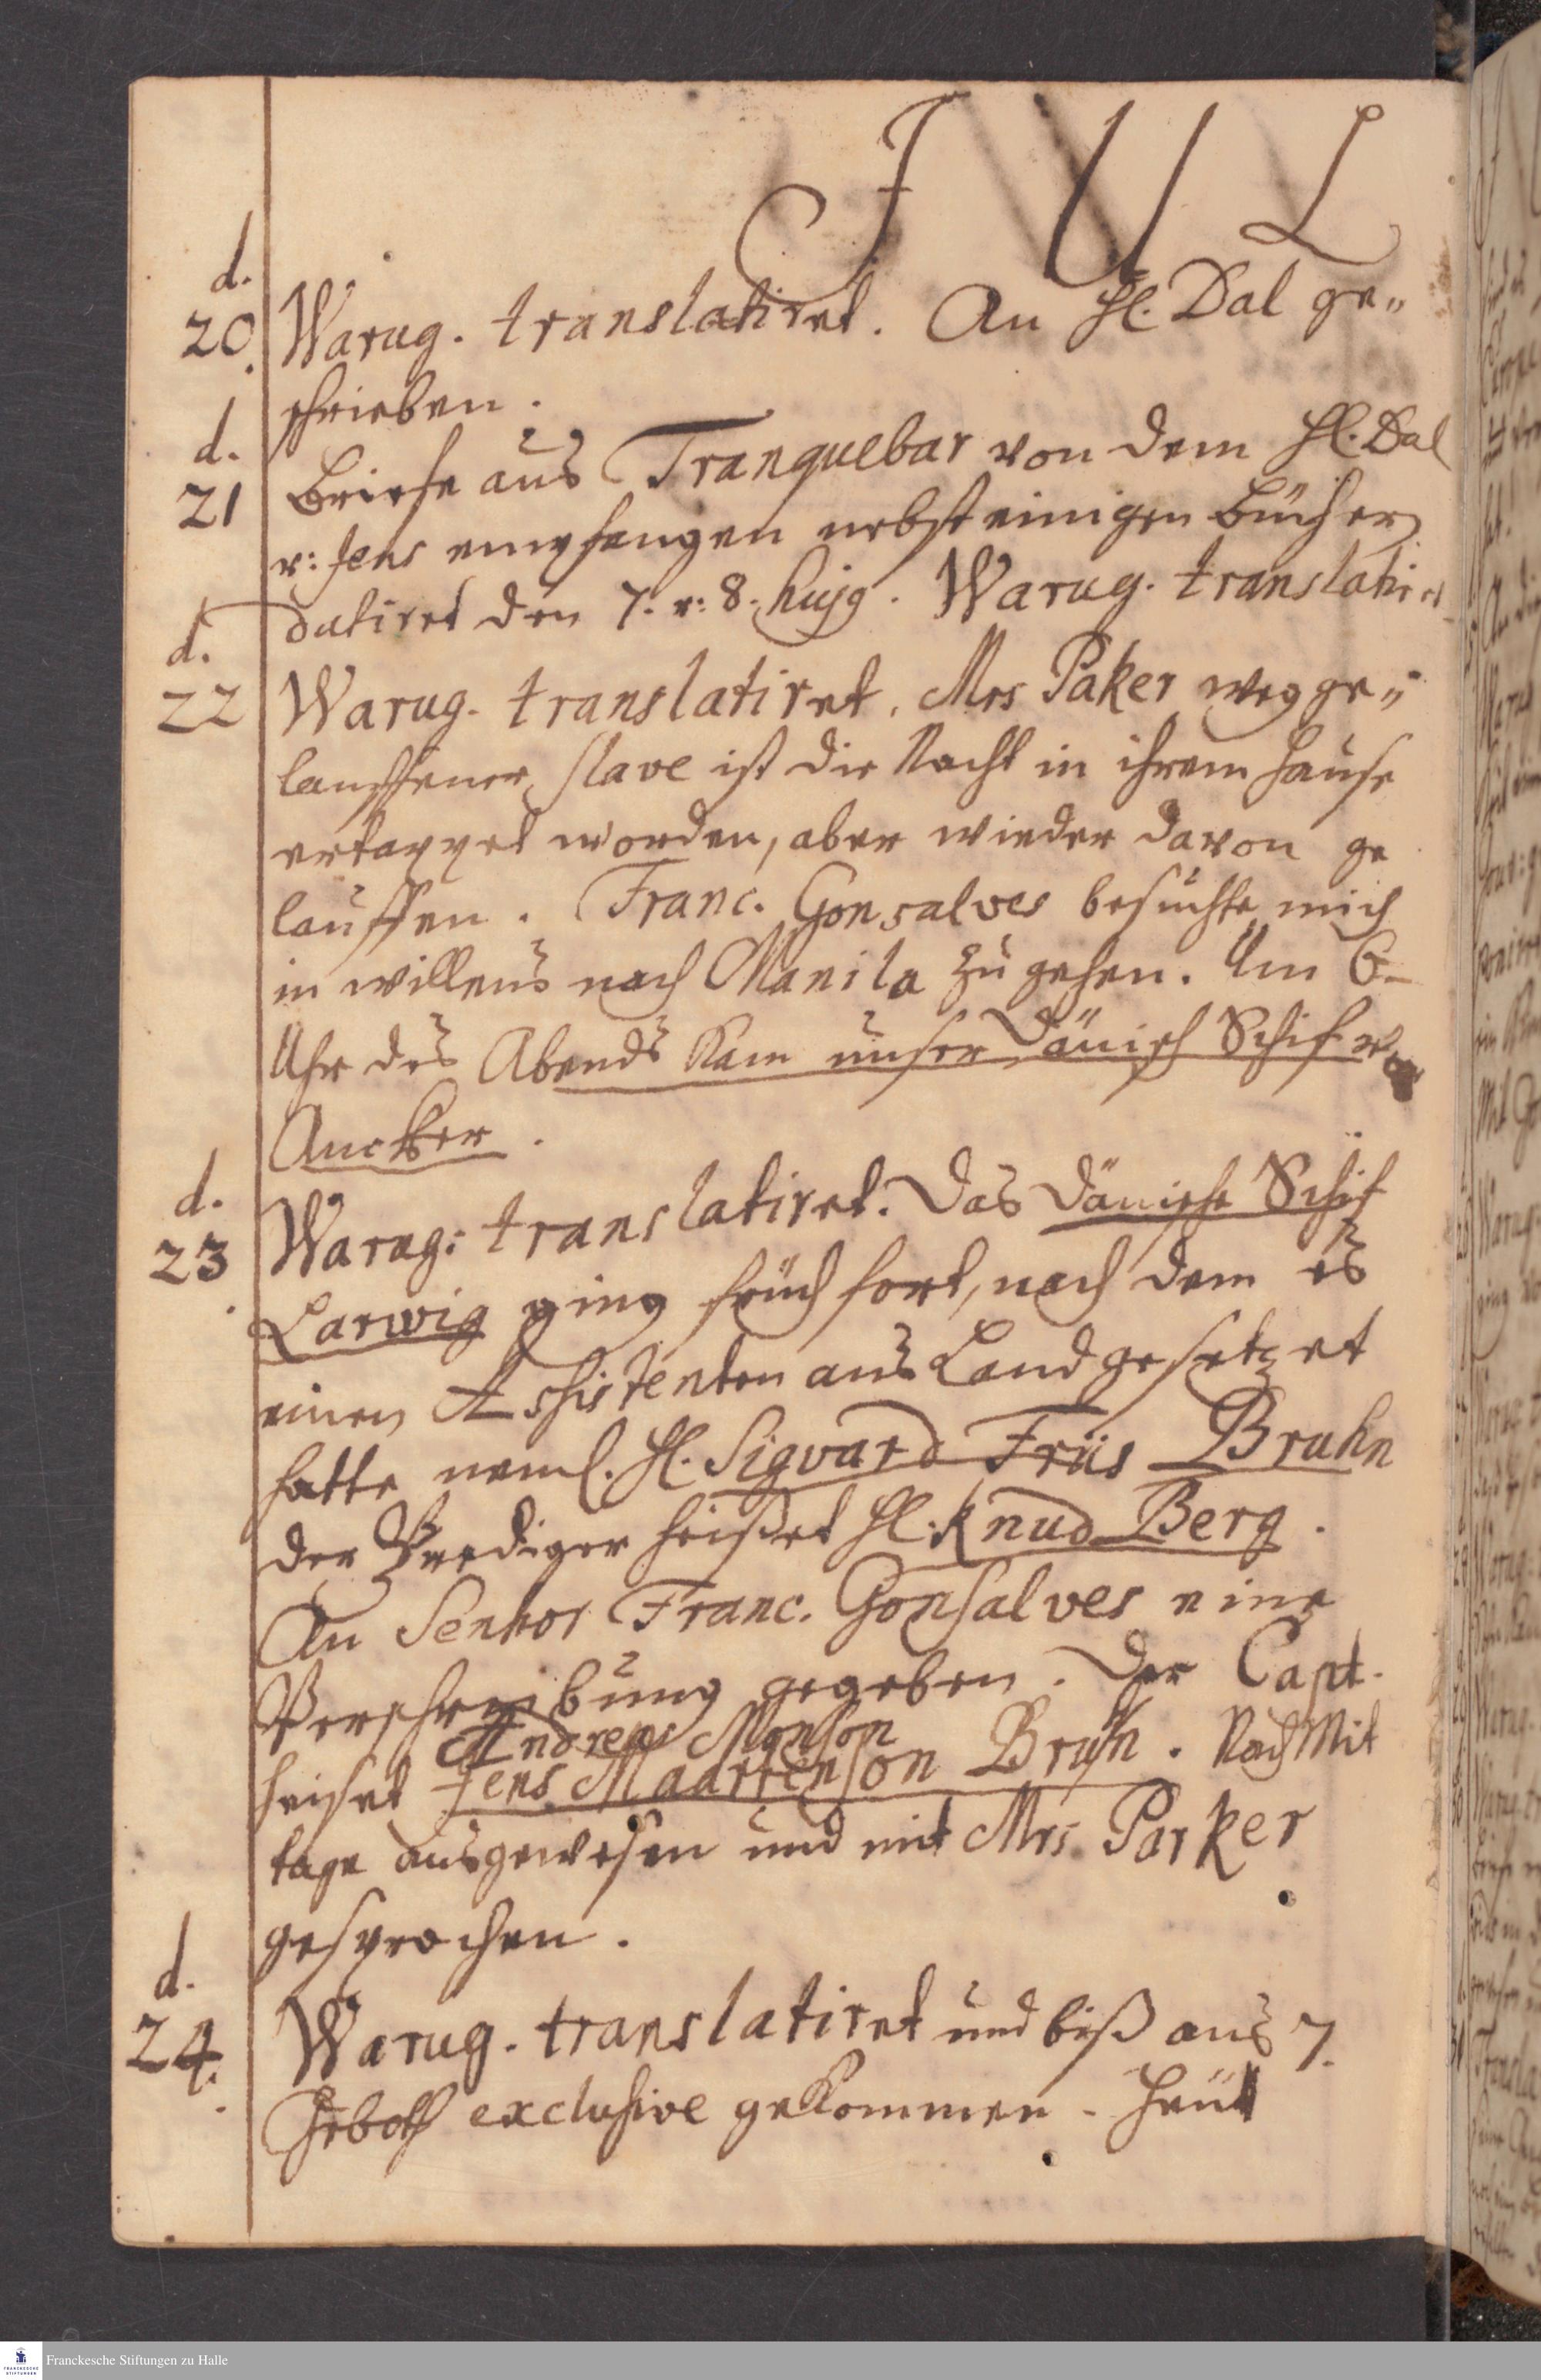 J U L
d.
20. Warug. translatiret. An H. Dal ge„
schrieben.
d.
21 Briefe aus Tranquebar von dem H. Dal
u: Jens empfangen nebst einigen Bücher
datiret den 7. u: 8. hujg. Warug. translatiret
d.
22 Warug. translatiret. Mrs Paker wegge„
lauffener Slave ist die Nacht in ihrem Hause
ertappet worden, aber wieder davon ge
lauffen. Franc. Gonsalves besuchte mich
in willens nach Manila zu gehen. Um 6
Uhr des Abends kam unser Dänisch Schif vor
Ancker.
d.
23. Warug: translatiret. Das Dänische Schif
Larwig ging früh fort, nach dem es
einen Assistenten ans Land gesetzet
hatte neml. H. Sigvard Friis Bruhn
der Prediger heißet H. Knud Berg.
An Senhor Franc. Gonsalves eine
Verschreibung gegeben. Der Capt.
Andreas Monson
heiset Jens Maartenson Bruhn. NachMit
tage ausgewesen und mit Mrs. Parker
gesprochen.
d.
24. Warug. translatiret und biß aus 7.
Geboth exclusive gekommen. Heut
Franckesche Stiftungen zu Halle
FRANCKESCHE
STIFTUNGEN